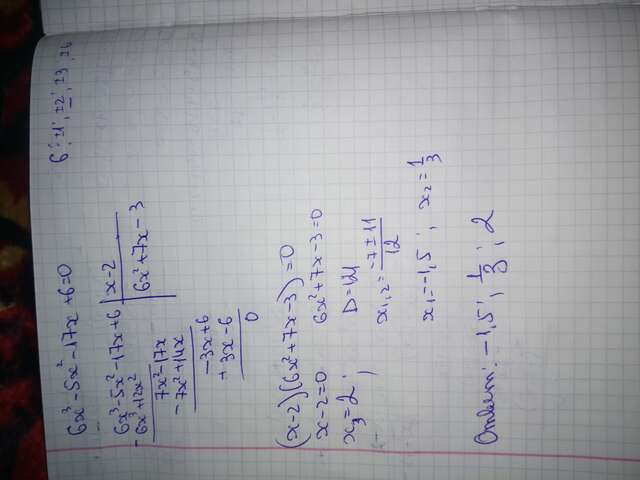 6x³-5x²-17x+6=0   6: ±1; ±2; ±3; ±6
6x³-5x²-17x+6 | x-2
- 6x³+12x²   6x²+7x-3
7x²-17x
- 7x²+14x
-3x+6
+ 3x-6
0
(x-2)(6x²+7x-3)=0
x-2=0   6x²+7x-3=0
x₃=2;   D=121
x₁,₂=(-7±11)/12
x₁=-1,5; x₂=1/3
Ответ: -1,5; 1/3; 2